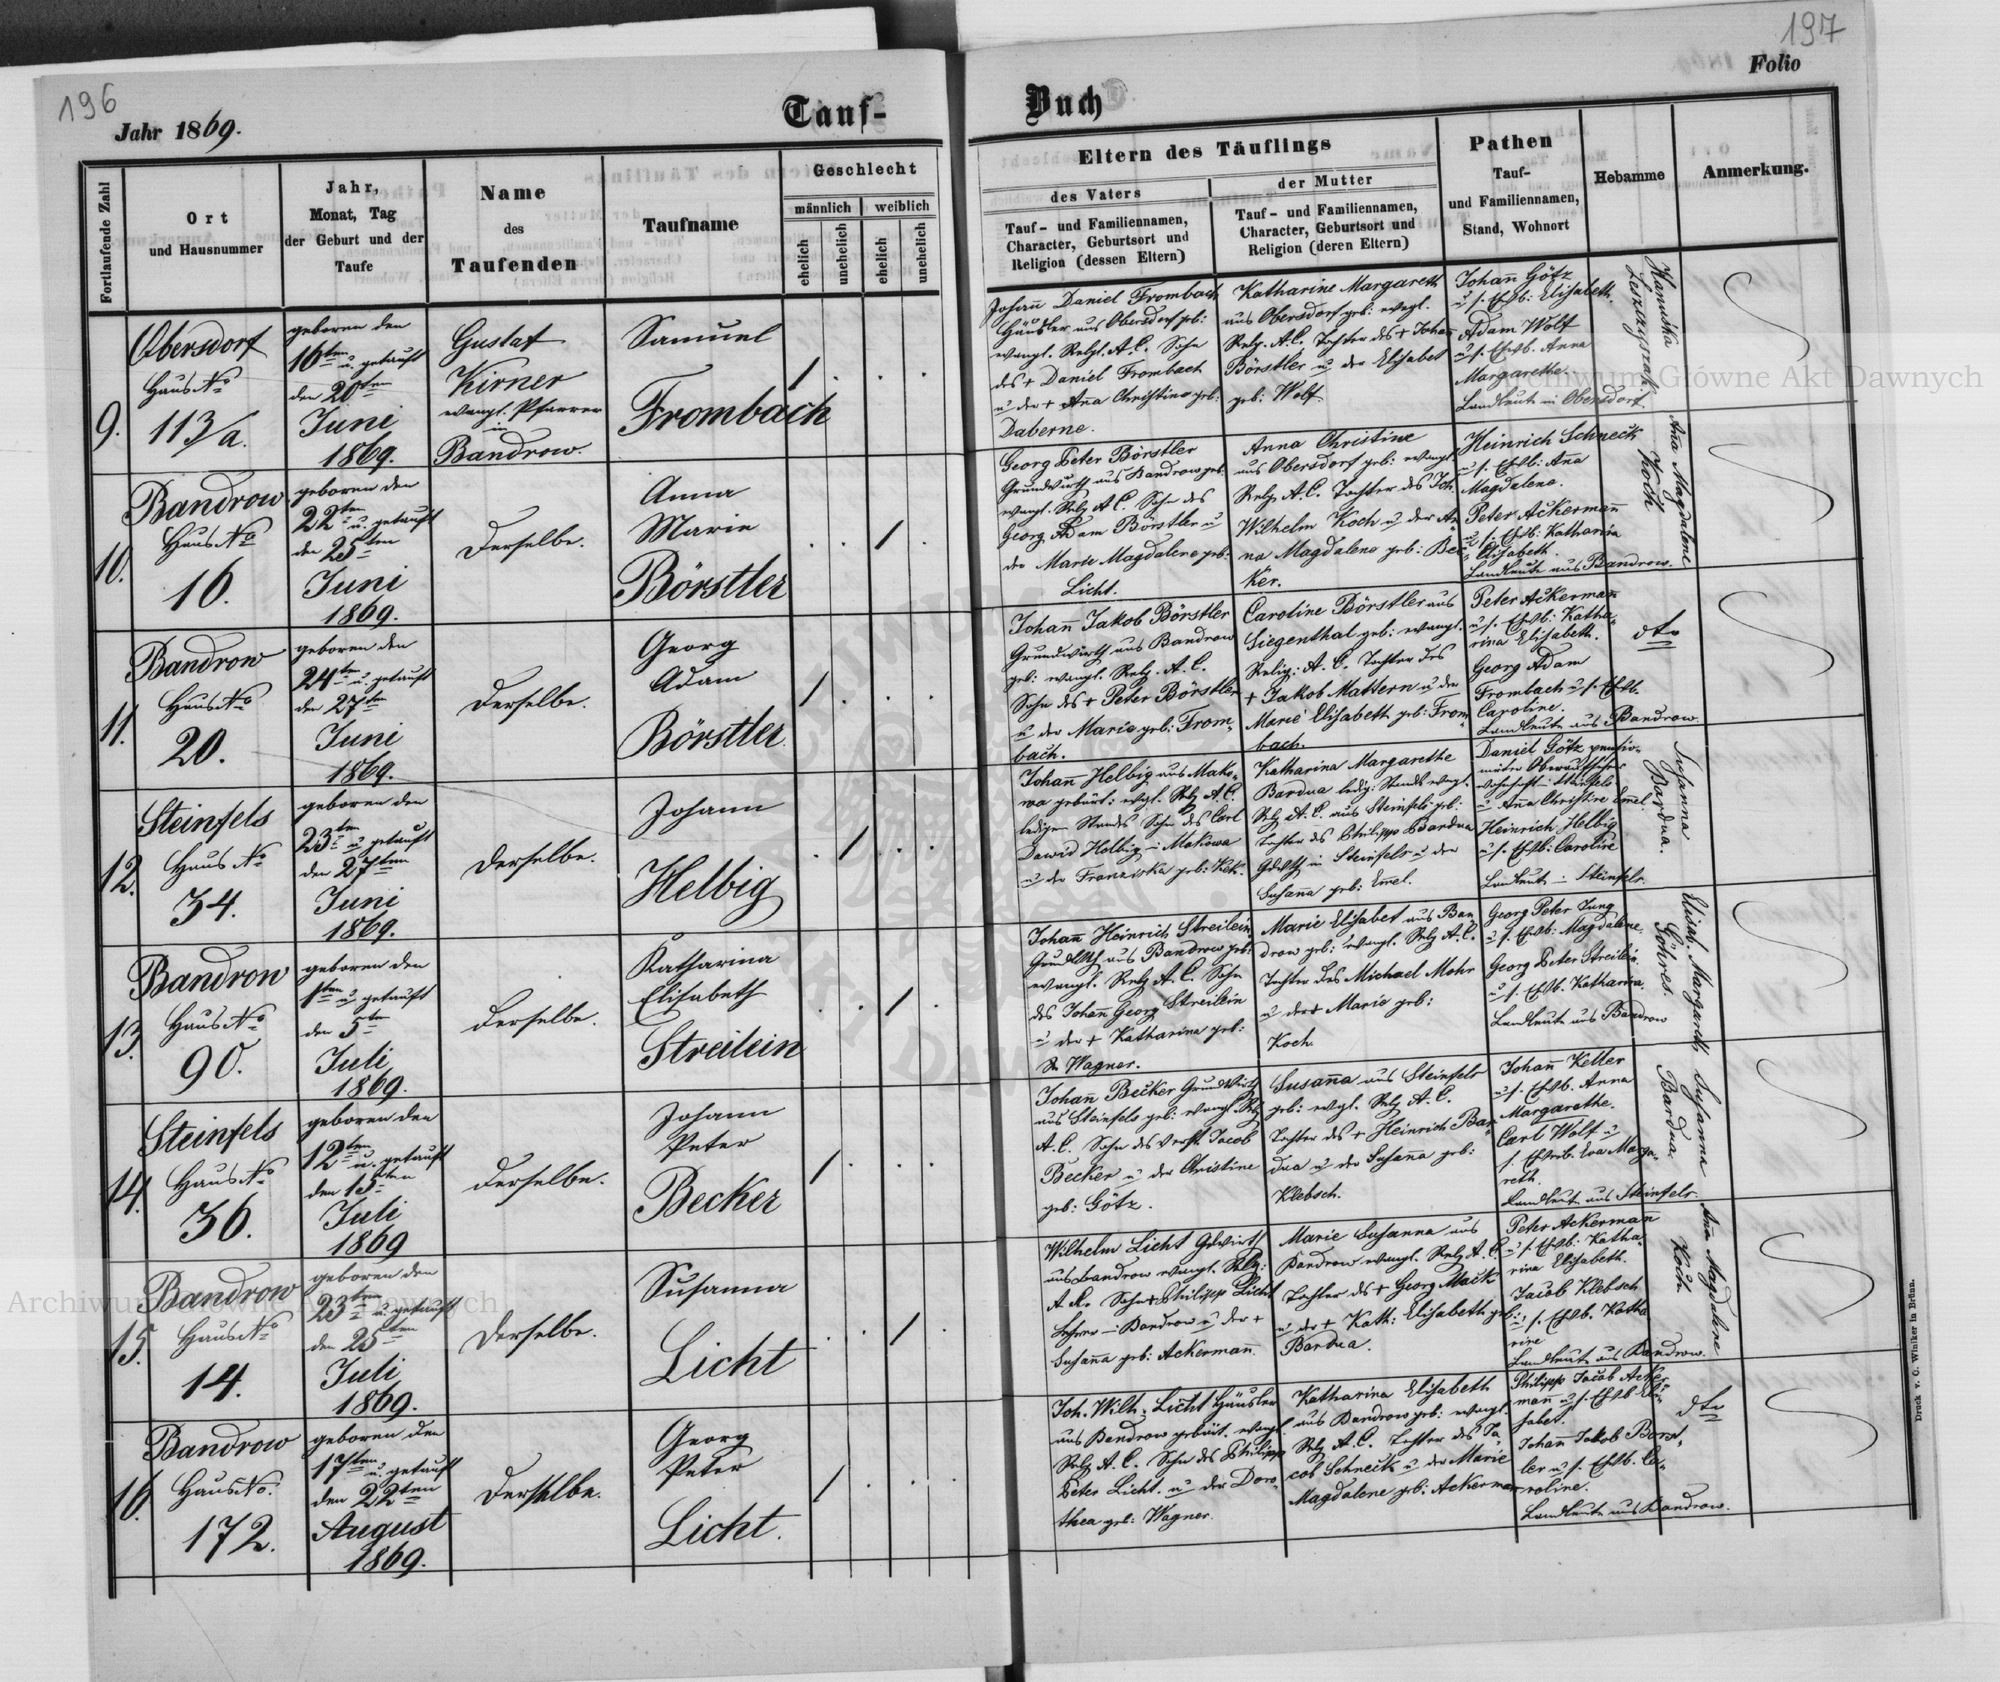 196
Jahr 1869.
Tauf-
Fortlaufende Zahl
Ort
und Hausnummer
Jahr,
Monat, Tag
der Geburt und der
Taufe
Name
des
Taufenden
Taufname
Geschlecht
männlich
weiblich
ehelich
unehelich
ehelich
unehelich
9.
Obersdorf
Haus No
113/a.
geboren den
16ten u. getauft
den 20ten
Juni
1869.
Gustaf
Kirner
evangl. Pfarrer
in
Bandrow.
Samuel
Frombach
10.
Bandrow
Haus No
16.
geboren den
22ten u. getauft
den 25ten
Juni
1869.
Derselbe.
Anna
Marie
Börstler
11.
Bandrow
Haus No
20.
geboren den
24ten u. getauft
den 27ten
Juni
1869.
Derselbe.
Georg
Adam
Börstler
12.
Steinfels
Haus No
34.
geboren den
23ten u getauft
den 27ten
Juni
1869.
Derselbe.
Johann
Helbig
13.
Bandrow
Haus No
90.
geboren den
1ten u getauft
den 5ten
Juli
1869.
Derselbe.
Katharina
Elisabeth
Streilein
14.
Steinfels
Haus No
36.
geboren den
12ten u. getauft
den 18ten
Juli
1869
Derselbe.
Johann
Peter
Becker
15.
Bandrow
Haus No
14.
geboren den
23ten u getauft
den 25ten
Juli
1869.
Derselbe.
Susanna
Licht
16.
Bandrow
Haus No.
172.
geboren den
17ten u. getauft
den 22ten
August
1869.
Derselbe.
Georg
Peter
Licht.
197
Folio
Buch
Eltern des Täuflings
des Vaters
Tauf- und Familiennamen,
Character, Geburtsort und
Religion (dessen Eltern)
der Mutter
Tauf- und Familiennamen,
Character, Geburtsort und
Religion (deren Eltern)
Pathen
Tauf-
und Familiennamen,
Stand, Wohnort
Hebamme
Anmerkung.
Johann Daniel Frombach
Häusler aus Obersdorf geb:
evangl. Relgt. A. C. Sohn
des + Daniel Frombach
u der + Anna Christine geb:
Daberne.
Katharine Margareth
aus Obersdorf geb: evagl.
Relg. A. C. Tochter des + Johann
Börstler u der Elisabet
geb: Wolf.
Johann Götz
u s. Ehwb: Elisabeth.
Adam Wolf
u s. Ehwb. Anna
Margarethe.
Landleute in Obersdorf.
Hanuska
Georg Peter Börstler
Grundwirth aus Bandrow geb:
evangl. Relg A C. Sohn des
Georg Adam Börstler u
der Marie Magdalena geb:
Licht.
Anna Christine
aus Obersdorf geb: evangl.
Relg. A. C. Tochter des Joh.
Wilhelm Koch u der An
na Magdalena geb: Bec
ker.
Heinrich Schneck
u s. Ehwb: Anna
Magdalena.
Peter Ackermann
u s. Ehwb: Katharina
Elisabeth.
Landleute aus Bandrow.
Anna Magdalene
Koch
Johann Jakob Börstler
Grundwirth aus Bandrow
geb: evangl. Relg. A. C.
Sohn des + Peter Börstler
u der Marie geb: From-
bach.
Caroline Börstler aus
Siegenthal geb: evangl.
Relig: A. C. Tochter des
+ Jakob Mattern u der
Marie Elisabeth geb: From
bach.
Peter Ackermann
u s. Ehwb: Katha-
rina Elisabeth.
Georg Adam
Frombach u s. Ehwb.
Caroline.
Landleute aus Bandrow
dto
Johann Helbig aus Mako-
wa gebürt: evgl. Relg A. C.
ledigen Standes Sohn des Carl
Dawid Helbig in Makowa
Katharina Margarethe
Bardua ledig: Stands evagl.
Relg A. C. aus Steinfels geb:
Tochter des Philipp Bardua
in Steinfels u der
Susanna geb: Emel.
Daniel Götz pensio-
u Anna Christine Emel.
Heinrich Helbig
u s. Ehwb: Caroline
Landleute in Steinfels.
Susanna
Bardua.
Johann Heinrich Streilein
aus Bandrow geb:
evangl. Relg A. C. Sohn
des Johann Georg Streilein
u der + Katharina geb:
Wagner.
Marie Elisabet aus Ban
drow geb: evangl. Relg A. C.
Tochter des Michael Mohr
u der + Marie geb:
Koch.
Georg Peter Jung
u s. Ehwb: Magdalene.
Georg Peter Streilein
u s. Ehwb. Katharina.
Landleute aus Bandrow
Johann Becker Grundwirth
aus Steinfels geb: evangl. Relg
A. C. Sohn des verst. Jacob
Becker u der Christine
geb: Götz.
Susanna aus Steinfels
geb: evgl. Relg A. C.
Tochter des + Heinrich Bar
dua u der Susanna geb:
Klebsch.
Johann Keller
u s. Ehwb. Anna
Margarethe.
Carl Wolf u
s. Ehwb. Eva Marga-
reth.
Landleute aus Steinfels.
Susanna
Bardua.
Wilhelm Licht
aus Bandrow evangl. Relg:
A. C. Sohn + Philipp Licht
Lehrer in Bandrow u der +
Susanna geb: Ackermann.
Marie Susanna aus
Bandrow evangl. Relg A. C.
Tochter des + Georg Mack
u der + Kath: Elisabeth geb:
Bardua.
Peter Ackermann
u s. Ehwb: Katha-
rina Elisabeth.
Jacob Klebsch
u s. Ehwb. Katha
rine
Landleute aus Bandrow.
Anna Magdalene
Koch.
Joh. Wilh. Licht Häusler
aus Bandrow gebürt. evangl.
Relg A. C. Sohn des Philipp
Peter Licht. u der Doro-
thea geb: Wagner.
Katharina Elisabeth
aus Bandrow geb: evangl.
Relg A. C. Tochter des Ja
cob Schneck u der Marie
Magdalene geb: Ackermann
Philipp Jacob Acker
mann u s. Ehwb Eli-
sabet.
Johann Jakob Börst-
ler u s. Ehwb. Ca-
roline.
Landleute aus Bandrow.
dto
Druck v. C. Winiker in Brünn.
Archiwum Główne Akt Dawnych
Archiwum Główne Akt Dawnych